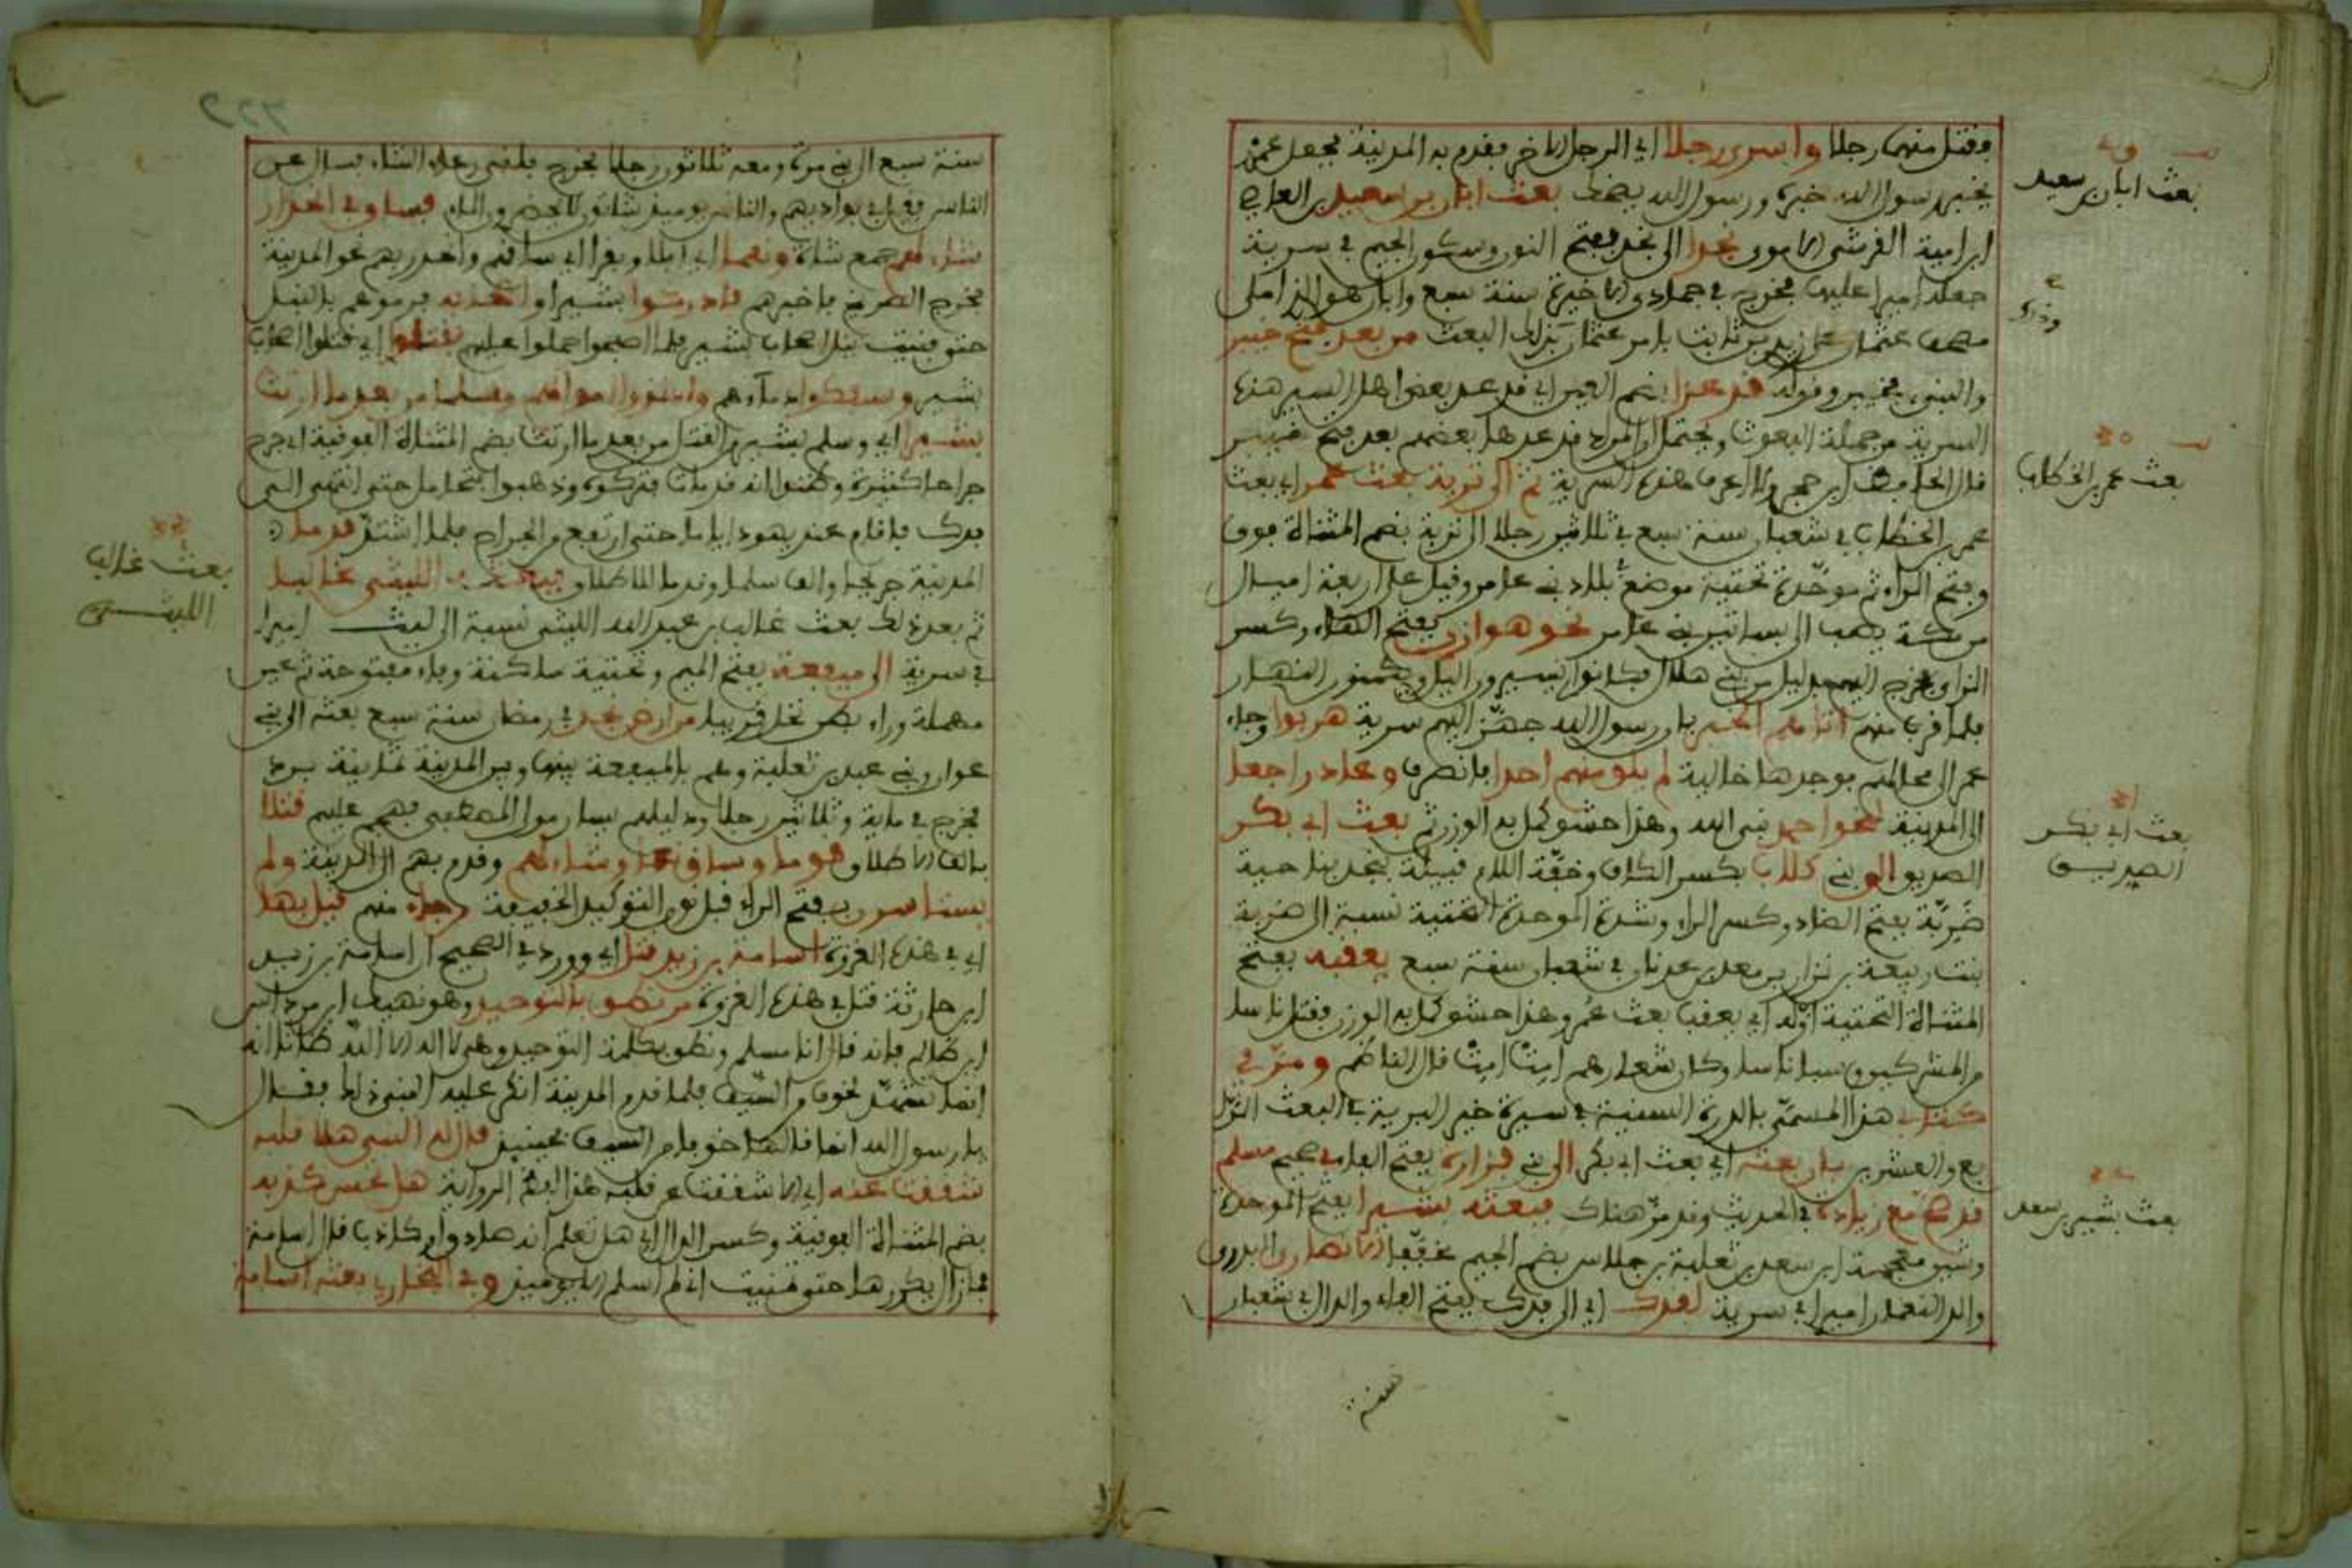 فقتل منهما رجلا واسررجلا اي الرجل الاخر فقدم به المدينة فجعل عمرو
يخبر رسول الله خبره ورسول الله يضحك بعث ابان بن سعيد بن العاص
ابن امية القرشي الاموي نجدا الى نجد بفتح النون وسكون الجيم في سرية
جعله اميرا عليها فخرج في جمادى الاخيرة سنة سبع وابان هو الذي املى
مصحف عثمان على زيد بن ثابت بامر عثمان بذلك البعث من بعد فتح خيبر
والنبي بخيبر وقوله قد عدا بضم العين اي قد عد بعض اهل السير هذه
السرية من جملة البعوث ويحتمل ان المراد قد عدها بعضهم بعد فتح خيبر
قال الحافظ ابن حجر ولا اعرف هذه السرية ثم الى تربة بعث عمرا اي بعث
عمر بن الخطاب في شعبان سنة سبع في ثلاثين رجلا الى تربة بضم المثناة فوق
وفتح الراء ثم موحدة تحتية موضع ببلاد بني عامر وقيل على اربعة اميال
من مكة يصب الى بساتين بني عامر نحو هوازن بفتح الهاء وكسر
الزاي وخرج اليهم بدليل من بني هلال فكانوا يسيرون اليل ويكمنون النهار
فلما قرب منهم اتاهم الخبر بان رسول الله جهز اليهم سرية هربوا وجاء
عمر الى محالهم فوجدها خالية لم يلق منهم احدا فانصرف وعاد راجعا
الى المدينة نحو احمد نبي الله وهذا حشو كمل به الوزن ثم بعث ابي بكر
الصديق الى بني كلاب بكسر الكاف وخفة اللام قبيلة بنجد بناحية
ضرية بفتح الضاد وكسر الراء وشدة الموحدة التحتية نسبة الى ضرية
بنت ربيعة بن نزار بن معد بن عدنان في شعبان سنة سبع يعقبه بفتح
المثناة التحتية اوله اي يعقب بعث عمر وهذا حشو كمل به الوزن فقتل ناسا
من المشركين وسبا ناسا وكان شعارهم امت امت قال الناظم ومر في
كتابي هذا المسمى بالدرة السنية في سيرة خير البرية في البعث الرا
بع والعشرين بان بعثه اي بعث ابي بكر الى بني فزارة بفتح الفاء في صحيح مسلم
قد صح مع زيادة في الحديث وقد مر هناك فبعثه بشيرا بفتح الموحدة
وشين معجمة ابن سعد بن ثعلبة بن جلاس بضم الجيم مخففا الانصاري البدري
والد النعمان اميرا في سرية لفدك اي الى فدك بفتح الفاء والدال في شعبان
سنة
بعث ابان بن سعيد
بعث عمر بن الخطاب
بعث ابي بكر
الصديق
بعث بشير بن سعد
سنة سبع الى بني مرة ومعه ثلاثون رجلا فخرج فلقي رعاء الشاء فسال عن
الناس فقيل في بواديهم والناس يومئذ شاتون لا يحضرون الماء فساق في انحدار
شاء لهم جمع شاة ونعما اي ابلا وبقرا اي ساقهم وانحدر بهم نحو المدينة
فخرج الصريخ فاخبرهم فادركوا بشيرا فرموهم بالنبل
حتى فنيت نبل اصحاب بشير فلما اصبحوا حملوا عليهم فقتلوا اي قتلوا اصحاب
بشير وسفكوا دماءهم وسلما من بعد ما ارتث
بشير اي وسلم بشير من القتل من بعد ما ارتث بضم المثناة الفوقية اي جرح
جراحا كثيرة وظنوا انه قد مات فتركوه وذهبوا فتحامل حتى انتهى الى
فدك فاقام عند يهود اياما حتى ارتفع من الجراح فلما اشتد قدما
المدينة جريحا والف سلما وقدما للاطلاق الليثي غالبا
ثم بعد ذلك بعث غالب بن عبد الله الليثي نسبة الى ليث اميرا
في سرية الى ميفعة بفتح الميم وتحتية ساكنة وفاء مفتوحة ثم عين
مهملة وراء بطن نخل قريبا من ارض نجد في رمضان سنة سبع بعثه الى بني
عوال وبني عبد بن ثعلبة وهم بالميفعة بينها وبين المدينة ثمانية برد
فخرج في ماية وثلاثين رجلا ودليلهم يسار مولى المصطفى فهجم عليهم قتلا
بالف الاطلاق قوما وساق نعما وشاء لهم وقدم بهم الى المدينة ولم
يستاسرن بفتح الراء قبل نون التوكيد الخفيفة رجاء منهم قيل بها
اي في هذه الغزوة اسامة بن زيد قتل اي وورد في الصحيح ان اسامة بن زيد
ابن حارثة قتل في هذه الغزوة من نطق بالتوحيد وهو نهيك ابن مرداس
فانه قال انا مسلم ونطق بكلمة التوحيد وهي لا اله الا الله ظانا انه
انما تشهد لخوف من السيف فلما قدم المدينة انكر عليه النبي ذلك فقال
يا رسول الله انما قالها خوفا من السيف فحينيذ قال له النبي هلا قلبه
شققت عنه اي الا شققت عن قلبه هذا لفظ الرواية هل تحس كذبه
بضم المثناة الفوقية وكسر الدال اي هل تعلم انه صادق او كاذب قال اسامة
فما زال يكررها حتى تمنيت اني لم اسلم الا يوميذ وفي البخاري بعثه اسامة
بعث غالب
الليثي